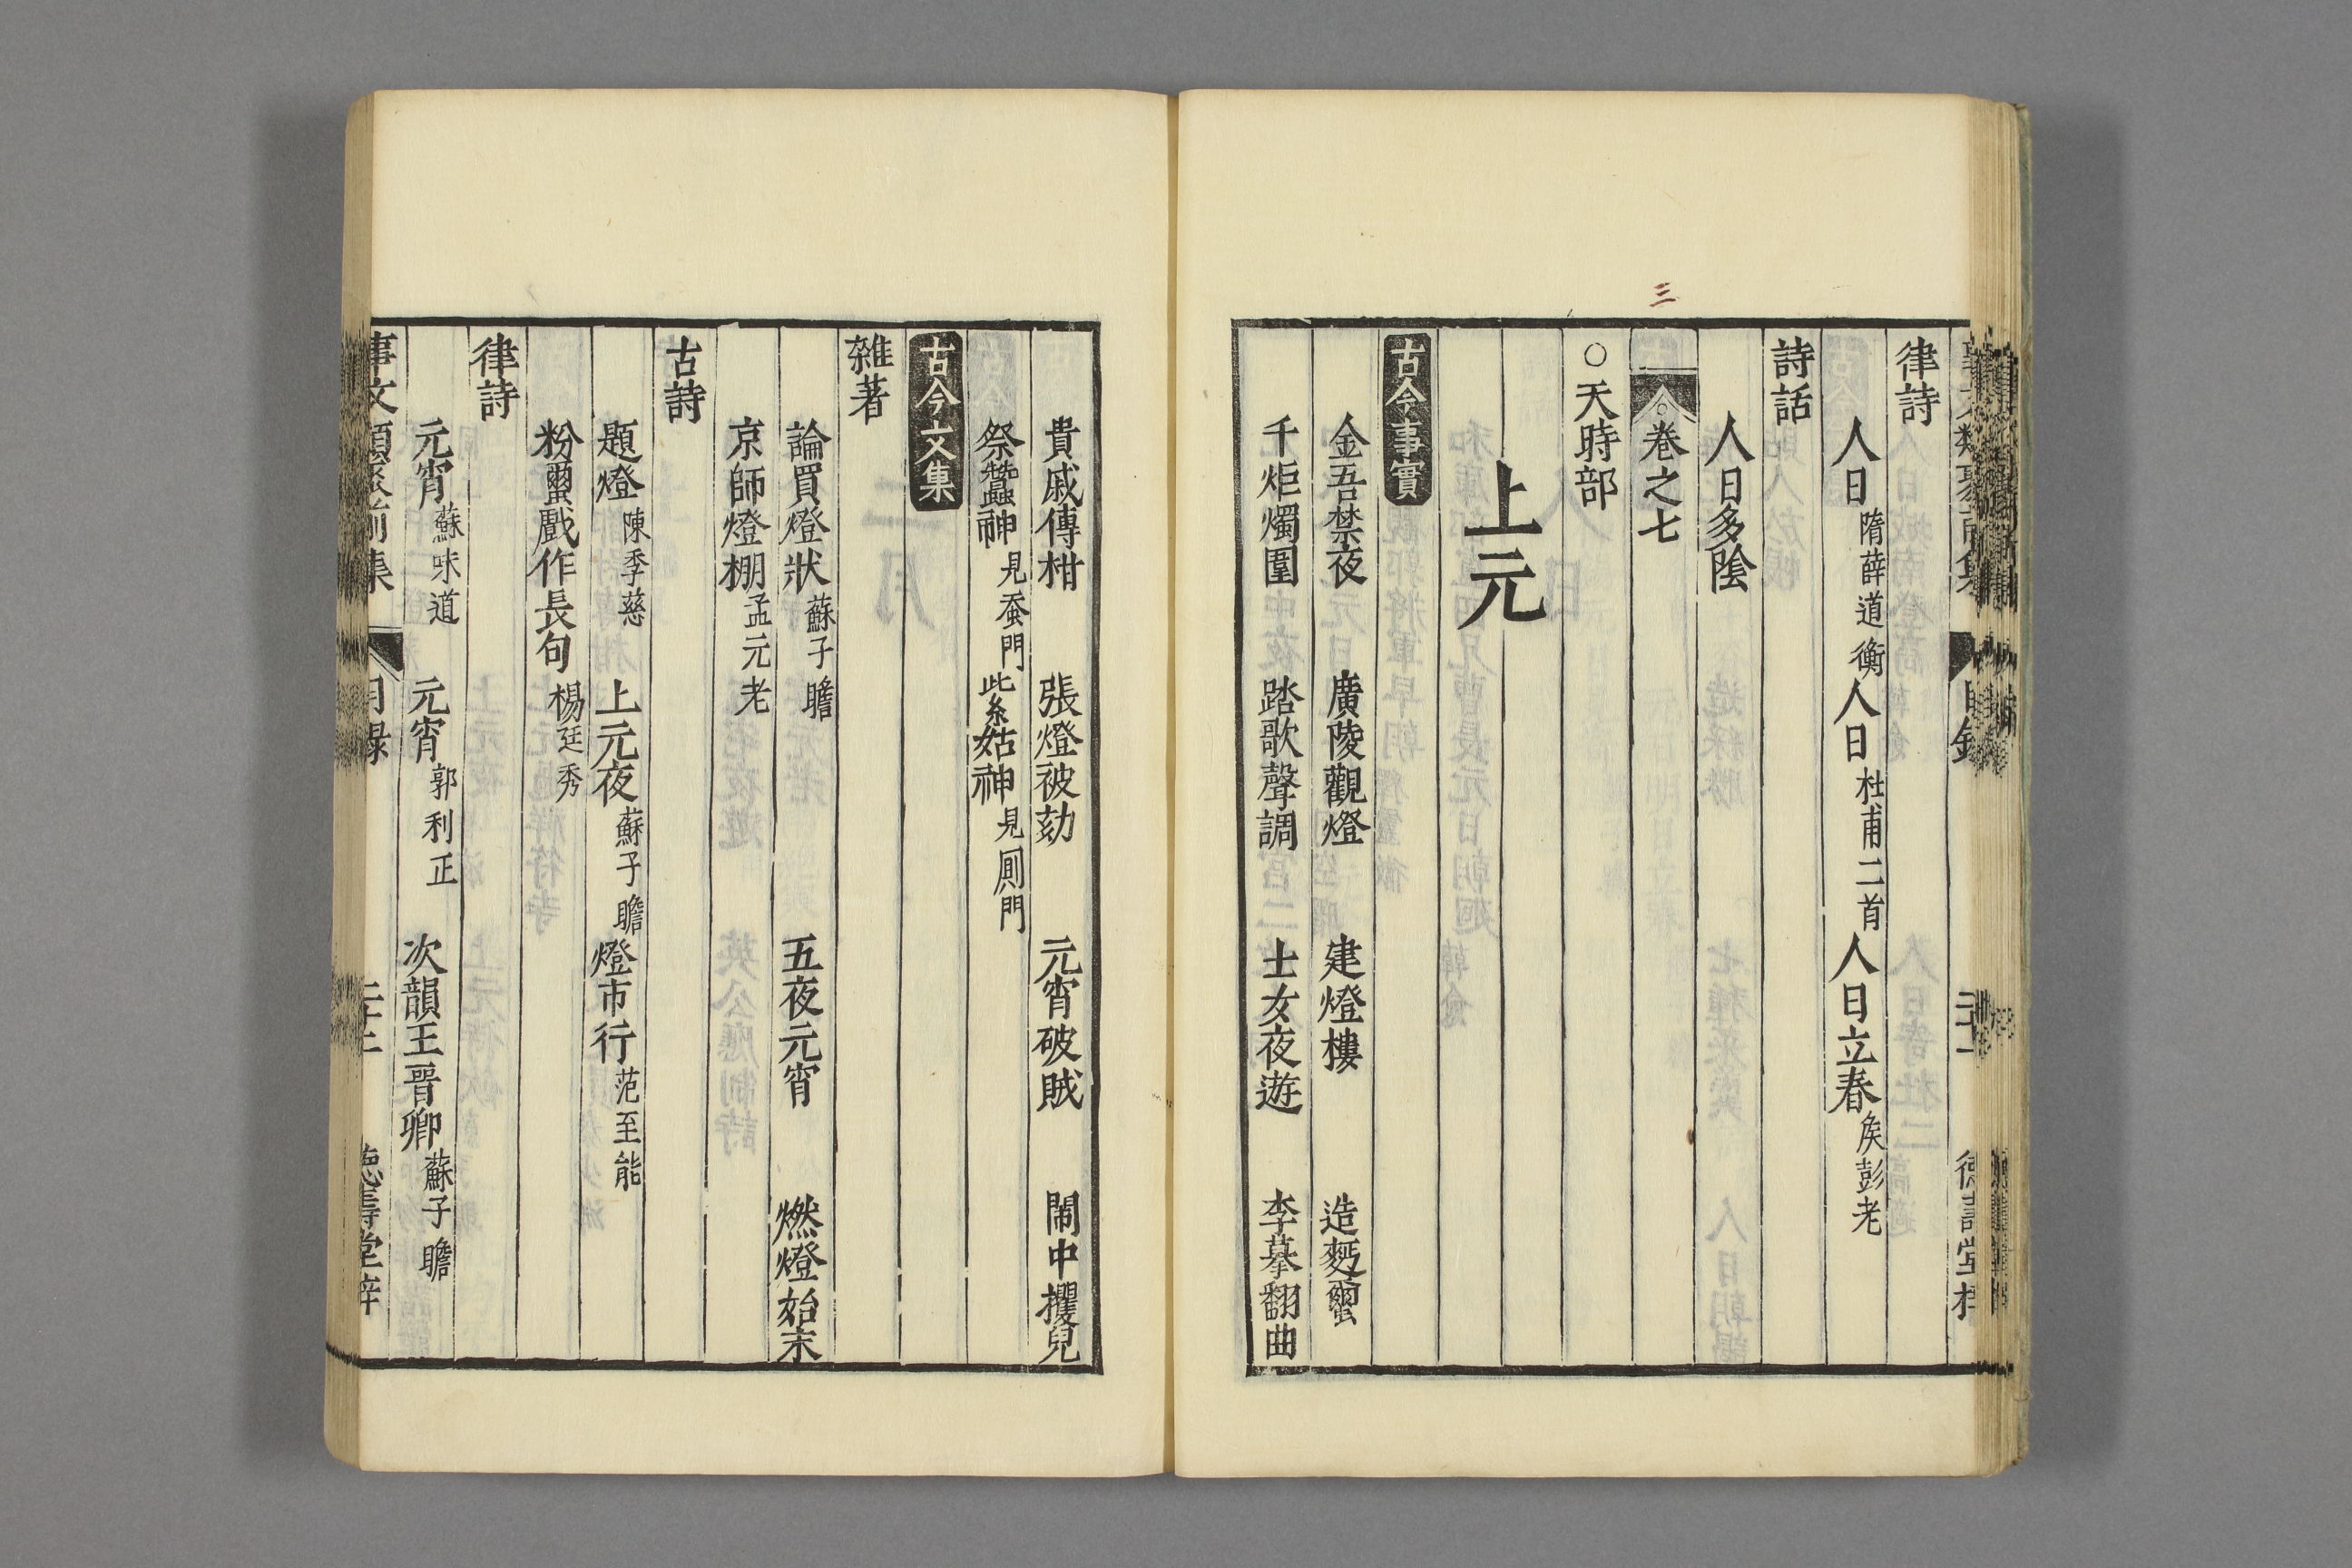 律詩
人日 隋薛道衡 人日 杜甫二首 人日立春 侯彭老
詩話
人日多陰
三
卷之七
○天時部
上元
古今事實
金吾禁夜 廣陵觀燈 建燈樓 造麪蠒
千炬燭圍 踏歌聲調 士女夜遊 李摹翻曲
貴戚傳柑 張燈被劾 元宵破賊 鬧中攫兒
祭蠶神 見蚕門 紫姑神 見厠門
古今文集
雜著
論買燈狀 蘇子瞻 五夜元宵 燃燈始末
京師燈棚 孟元老
古詩
題燈 陳季慈 上元夜 蘇子瞻 燈市行 范至能
粉蠒戲作長句 楊廷秀
律詩
元宵 蘇味道 元宵 郭利正 次韻王晉卿 蘇子瞻
事文類聚前集 目錄 德壽堂梓